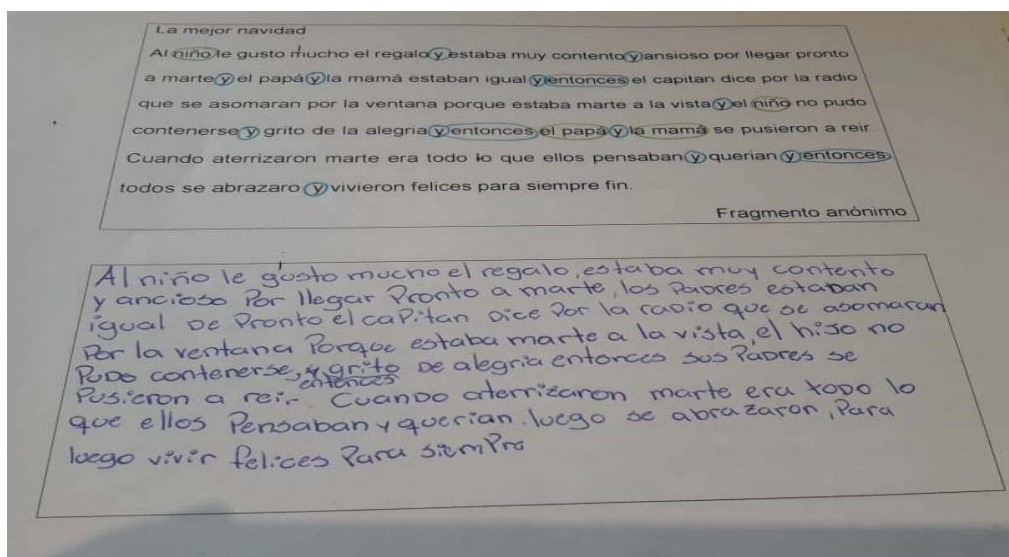 La mejor navidad
Al niño le gusto mucho el regalo y estaba muy contento y ansioso por llegar pronto
a marte y el papá y la mamá estaban igual y entonces el capitan dice por la radio
que se asomaran por la ventana porque estaba marte a la vista y el niño no pudo
contenerse y grito de la alegria y entonces el papá y la mamá se pusieron a reir.
Cuando aterrizaron marte era todo lo que ellos pensaban y querian y entonces
todos se abrazaro y vivieron felices para siempre fin.
Fragmento anónimo
Al niño le gusto mucho el regalo, estaba muy contento
y ancioso Por llegar Pronto a marte, los Padres estaban
igual De Pronto el caPitan Dice Por la raDio que se asomaran
Por la ventana Porque estaba marte a la vista, el hijo no
PuDo contenerse, y grito De alegria entonces sus Padres se
entonces
Pusieron a reir. Cuando aterrizaron marte era toDo lo
que ellos Pensaban y querian. luego se abrazaron, Para
luego vivir felices Para siemPre